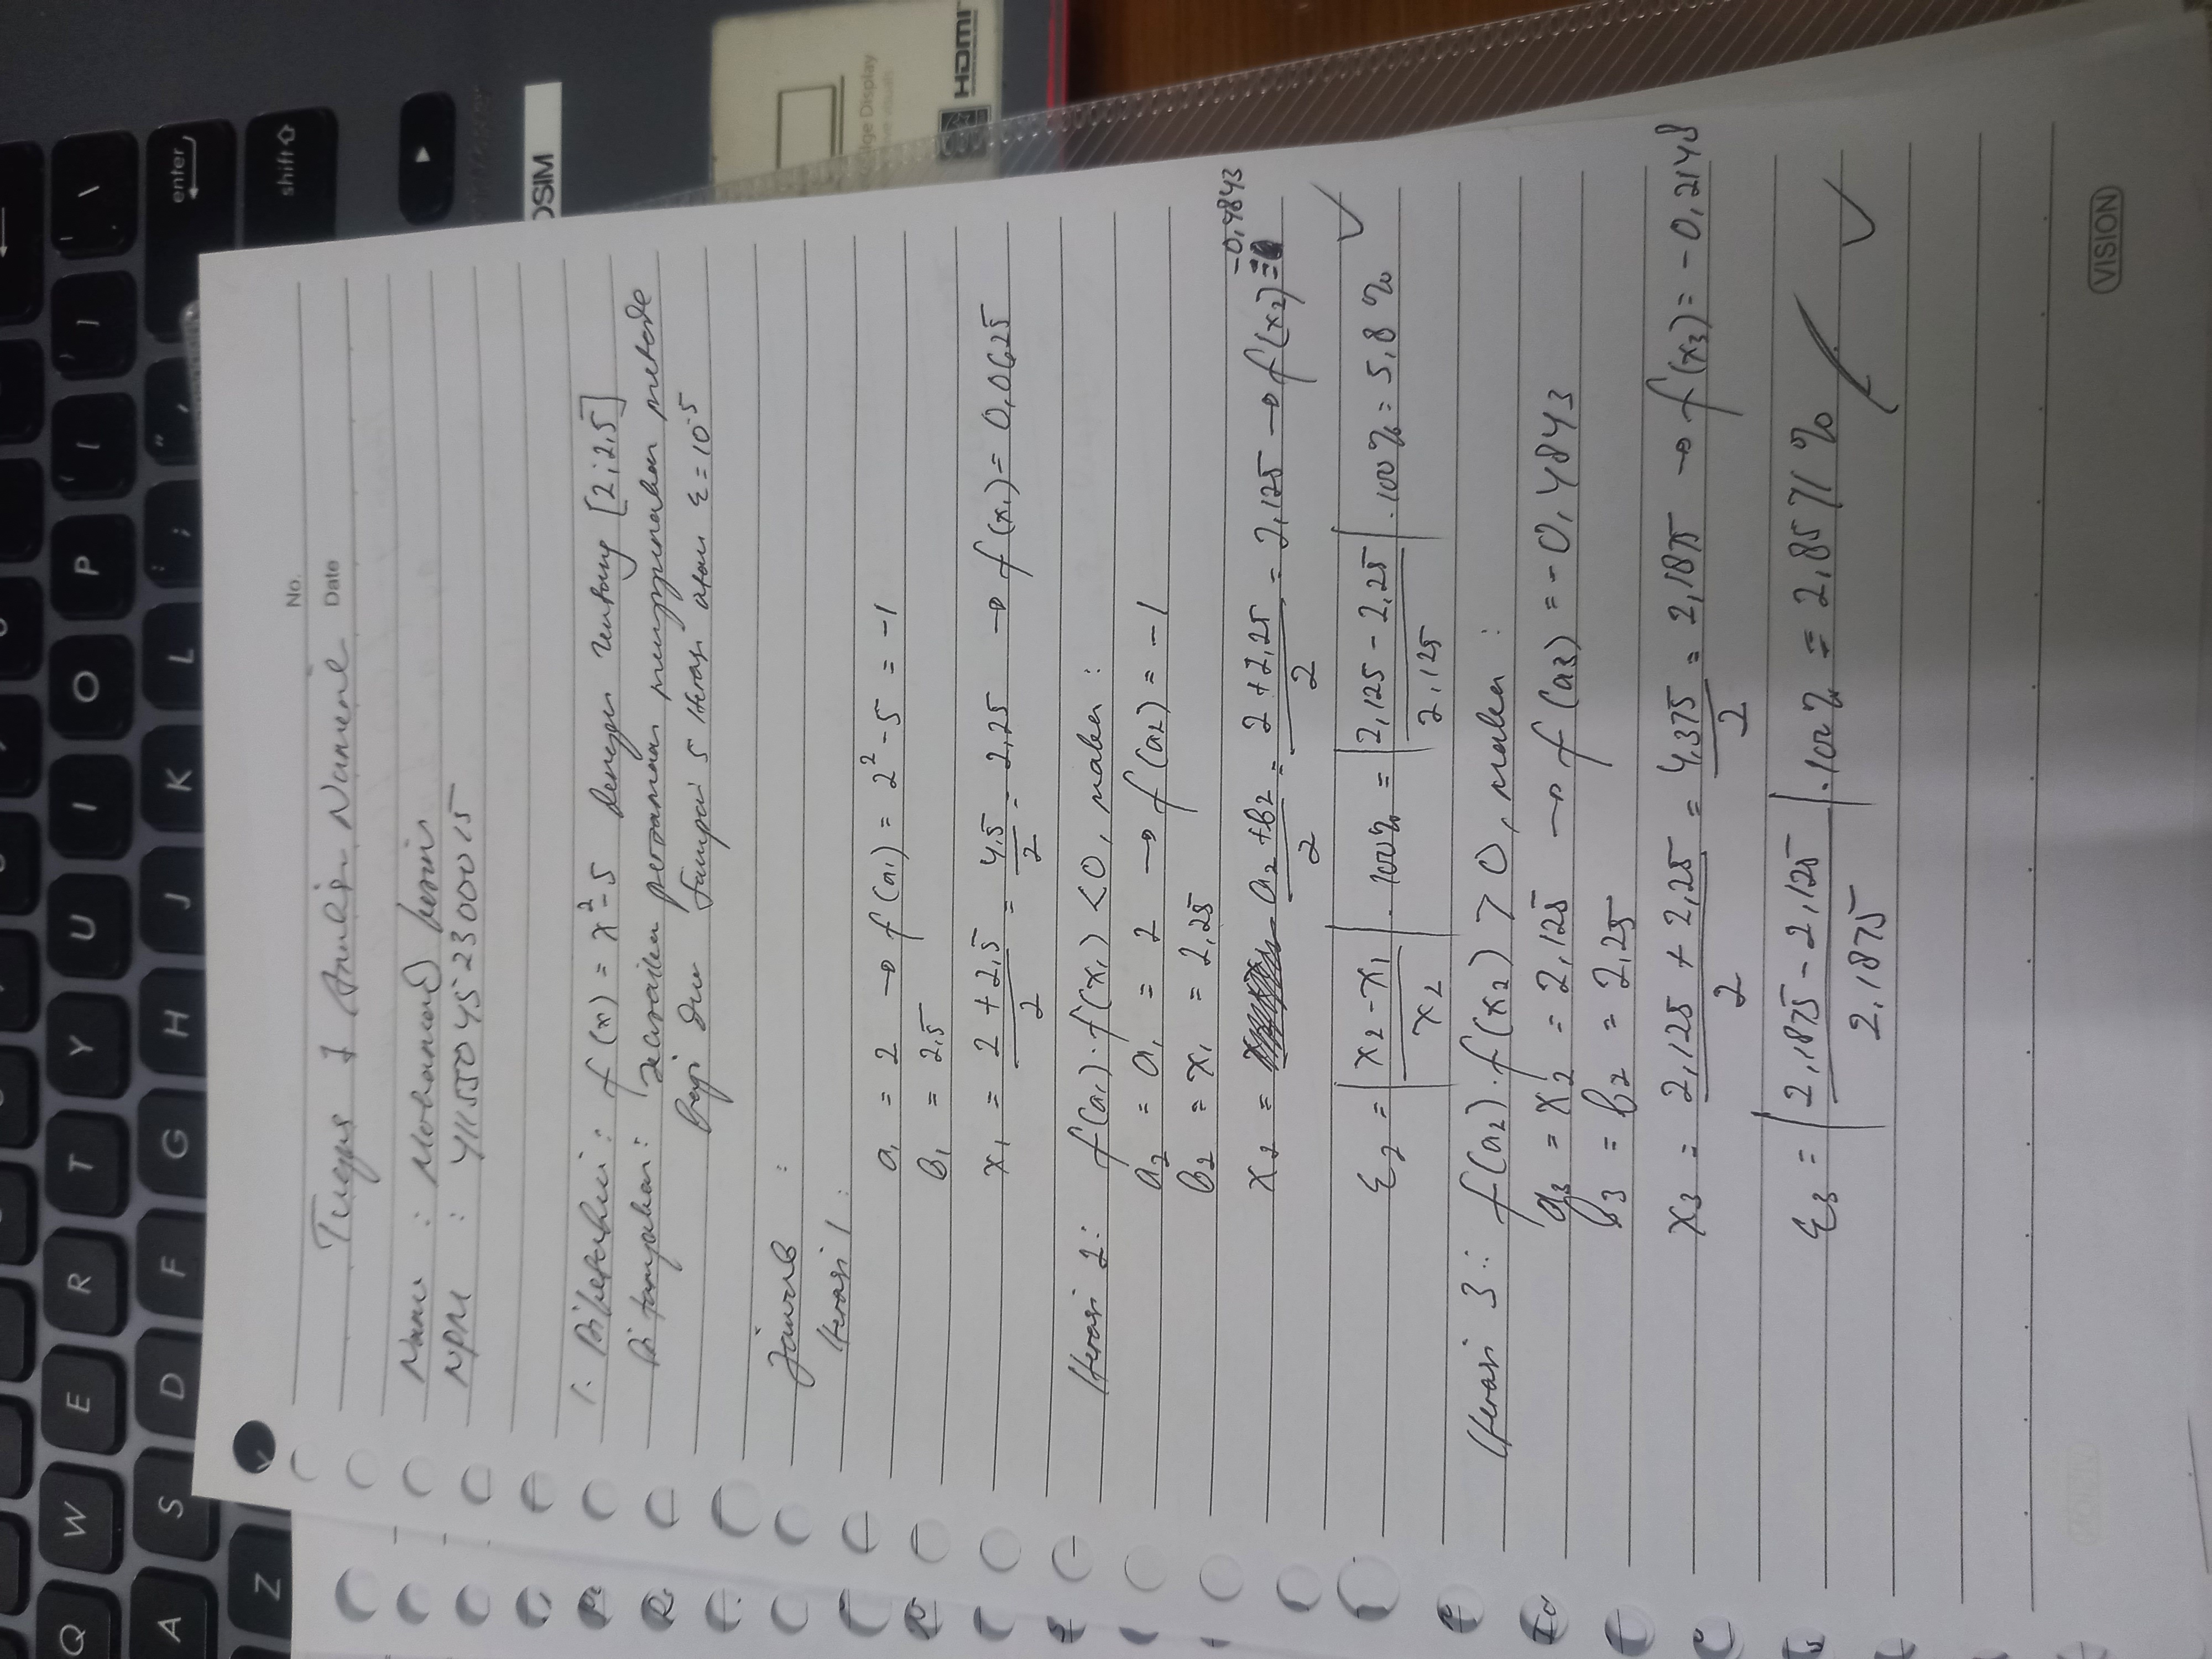 Q W E R T Y U I O P [ ] \
A S D F G H J K L ; ' enter
Z shift
No.
Tugas 1 Analisis Numerik Date
Nama : Mohamad
NPM : 4115504523000 15
1. Diketahui : f(x) = x² - 5 dengan rentang [2 ; 2,5]
Ditanyakan : persamaan menggunakan metode
bagi dua sampai 5 iterasi atau ε = 10⁻⁵
Jawab :
Iterasi 1 :
a₁ = 2 → f(a₁) = 2² - 5 = -1
b₁ = 2,5
x₁ = (2 + 2,5)/2 = 4,5/2 = 2,25 → f(x₁) = 0,0625
Iterasi 2 : f(a₁) . f(x₁) < 0, maka :
a₂ = a₁ = 2 → f(a₂) = -1
b₂ = x₁ = 2,25
x₂ = (a₂ + b₂)/2 = (2 + 2,25)/2 = 2,125 → f(x₂) = -0,4843
ε₂ = |(x₂ - x₁)/x₂| . 100% = |(2,125 - 2,25)/2,125| . 100% = 5,8 %
Iterasi 3 : f(a₂) . f(x₂) > 0, maka :
a₃ = x₂ = 2,125 → f(a₃) = -0,4843
b₃ = b₂ = 2,25
x₃ = (2,125 + 2,25)/2 = 4,375/2 = 2,1875 → f(x₃) = -0,2148
ε₃ = |(2,1875 - 2,125)/2,1875| . 100% = 2,8571 %
VISION
OSIM
Display
HDMI